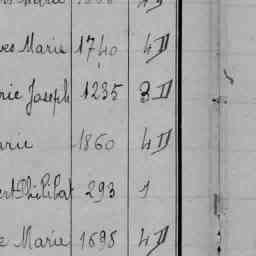 ves Marie 1740 4D
rie Joseph 1235 3D
arie 1860 4D
ert Philibat 293 1
e Marie 1698 4D